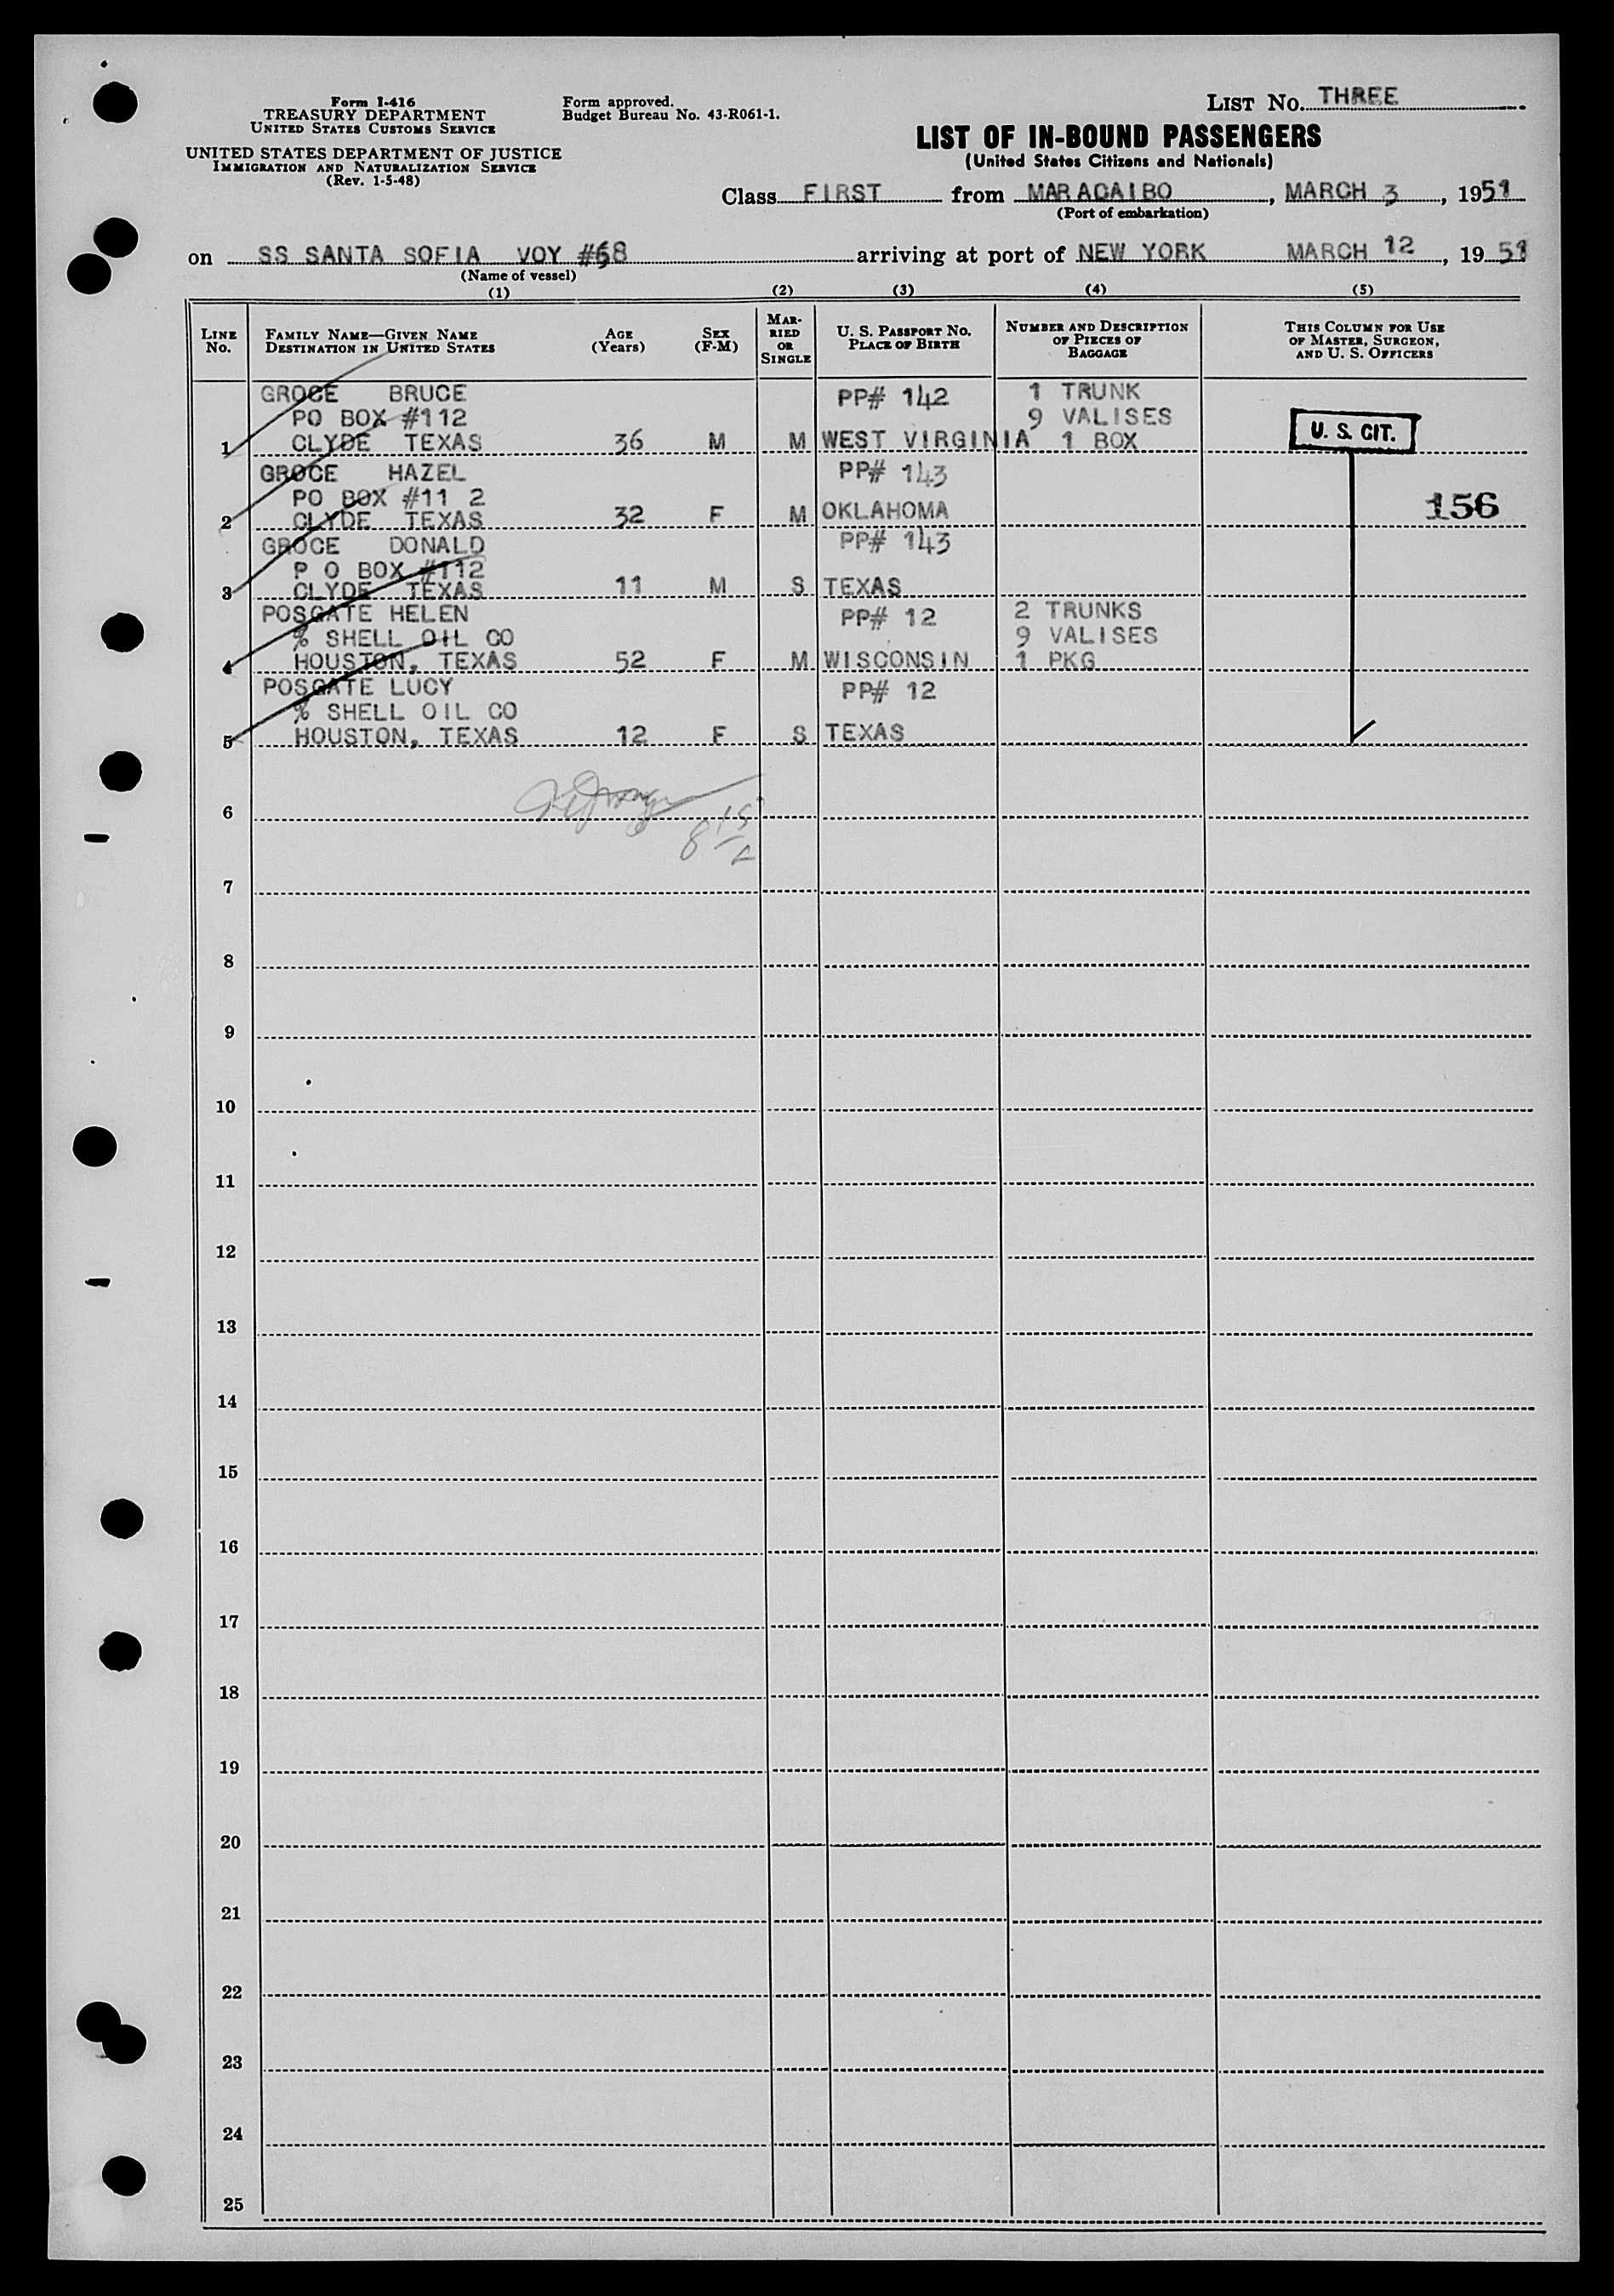 Form I-416
TREASURY DEPARTMENT
UNITED STATES CUSTOMS SERVICE
UNITED STATES DEPARTMENT OF JUSTICE
IMMIGRATION AND NATURALIZATION SERVICE
(Rev. 1-5-48)
Form approved.
Budget Bureau No. 43-R061-1.
LIST No. THREE
LIST OF IN-BOUND PASSENGERS
(United States Citizens and Nationals)
Class FIRST from MARACAIBO, MARCH 3, 1951
(Port of embarkation)
on SS SANTA SOFIA VOY #68 arriving at port of NEW YORK MARCH 12, 1951
(Name of vessel)
(1) (2) (3) (4) (5)
LINE No. FAMILY NAME—GIVEN NAME DESTINATION IN UNITED STATES AGE (Years) SEX (F-M) MARRIED OR SINGLE U. S. PASSPORT No. PLACE OF BIRTH NUMBER AND DESCRIPTION OF PIECES OF BAGGAGE THIS COLUMN FOR USE OF MASTER, SURGEON, AND U. S. OFFICERS
GROCE BRUCE PP# 142 1 TRUNK
PO BOX #112 9 VALISES
1 CLYDE TEXAS 36 M M WEST VIRGINIA 1 BOX U. S. CIT.
GROCE HAZEL PP# 143
PO BOX #11 2 156
2 CLYDE TEXAS 32 F M OKLAHOMA
GROCE DONALD PP# 143
P O BOX #112
3 CLYDE TEXAS 11 M S TEXAS
POSGATE HELEN PP# 12 2 TRUNKS
% SHELL OIL CO 9 VALISES
4 HOUSTON, TEXAS 52 F M WISCONSIN 1 PKG
POSGATE LUCY PP# 12
% SHELL OIL CO
5 HOUSTON, TEXAS 12 F S TEXAS
6
7
8
9
10
11
12
13
14
15
16
17
18
19
20
21
22
23
24
25